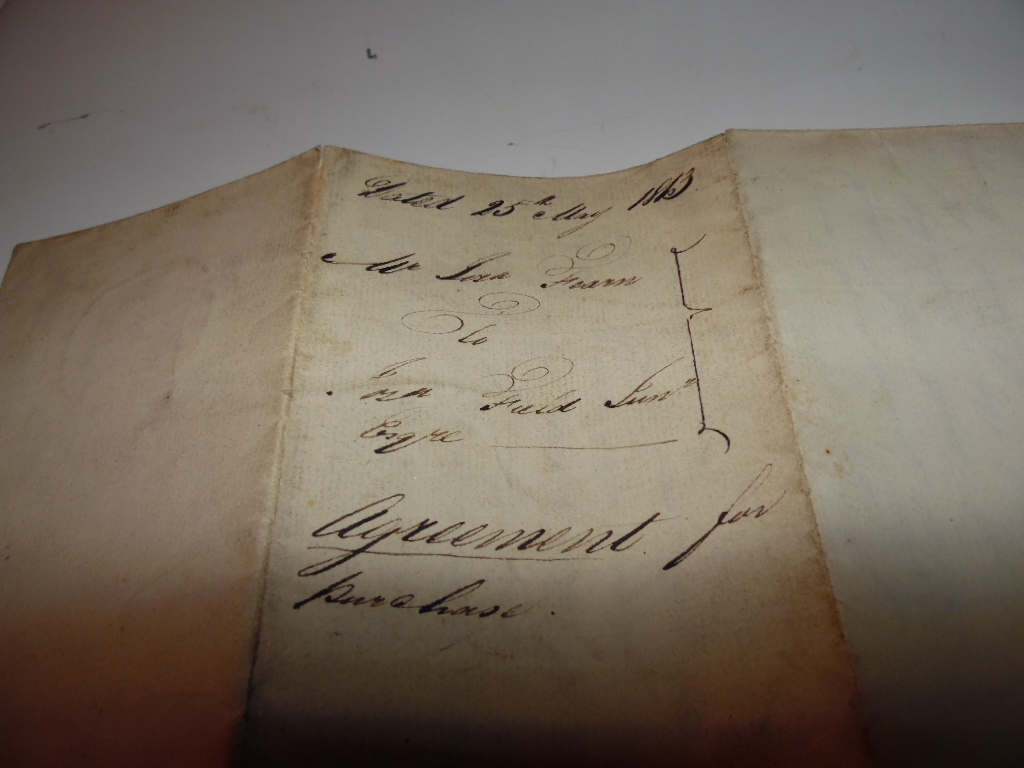 Dated 25th May 1813
Mr Fearn
to
Field Junr
Esqre
Agreement for
purchase.